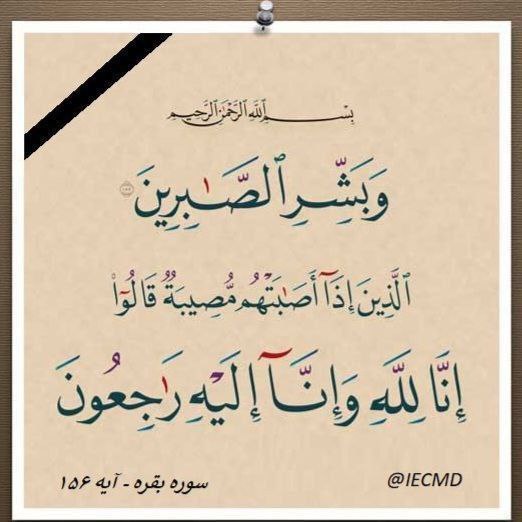 بِسْمِ ٱللَّهِ ٱلرَّحْمَٰنِ ٱلرَّحِيمِ
وَبَشِّرِ ٱلصَّٰبِرِينَ ١٥٥
ٱلَّذِينَ إِذَآ أَصَٰبَتْهُم مُّصِيبَةٌ قَالُوٓا۟
إِنَّا لِلَّهِ وَإِنَّآ إِلَيْهِ رَٰجِعُونَ
سوره بقره - آیه ۱۵۶
@IECMD